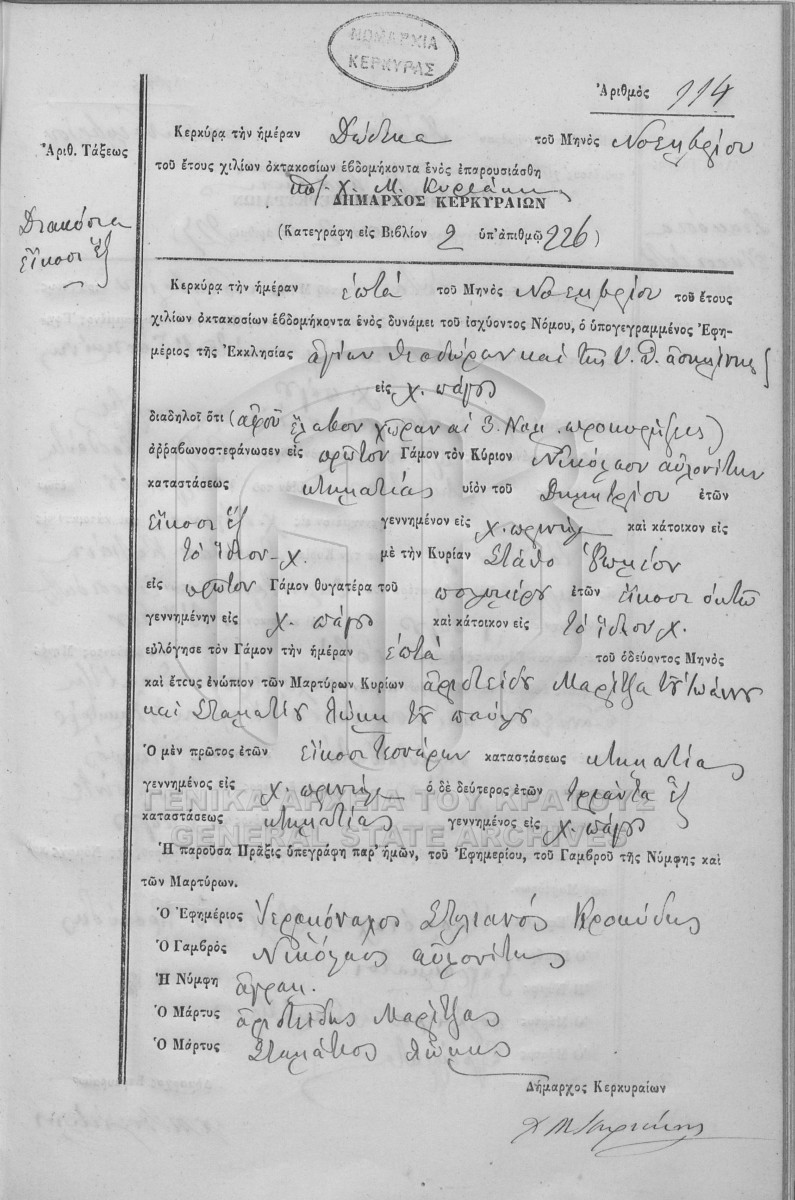 ΝΟΜΑΡΧΙΑ
ΚΕΡΚΥΡΑΣ
Ἀριθμὸς 114
Ἀριθ. Τάξεως
Διακόσια
εἴκοσι ἓξ
Κερκύρᾳ τὴν ἡμέραν Δώδεκα τοῦ Μηνὸς Νοεμβρίου
τοῦ ἔτους χιλίων ὀκτακοσίων ἑβδομήκοντα ἑνὸς ἐπαρουσιάσθη
Χ. Μ. Κυριάκης
ΔΗΜΑΡΧΟΣ ΚΕΡΚΥΡΑΙΩΝ
(Κατεγράφη εἰς Βιβλίον 2 ὑπ' ἀριθμῷ 226)
Κερκύρᾳ τὴν ἡμέραν ἑπτὰ τοῦ Μηνὸς Νοεμβρίου τοῦ ἔτους
χιλίων ὀκτακοσίων ἑβδομήκοντα ἑνὸς δυνάμει τοῦ ἰσχύοντος Νόμου, ὁ ὑπογεγραμμένος Ἐφη-
μέριος τῆς Ἐκκλησίας ἁγίων Θεοδώρων καὶ τῆς Υ. Θ.
εἰς χ. πάγου
διαδηλοῖ ὅτι (ἀφοῦ ἔλαβον χῶραν αἱ 3. προκηρύξεις)
ἀῤῥαβωνοστεφάνωσεν εἰς πρῶτον Γάμον τὸν Κύριον Νικόλαον αὐλονίτην
καταστάσεως κτηματίας υἱὸν τοῦ Δημητρίου ἐτῶν
εἴκοσι ἓξ γεννημένον εἰς χ. πρινύλα καὶ κάτοικον εἰς
τὸ ἴδιον χ. μὲ τὴν Κυρίαν Στάθο
εἰς πρῶτον Γάμον θυγατέρα τοῦ ἐτῶν εἴκοσι ὀκτὼ
γεννημένην εἰς χ. πάγου καὶ κάτοικον εἰς τὸ ἴδιον χ.
εὐλόγησε τὸν Γάμον τὴν ἡμέραν ἑπτὰ τοῦ ὁδεύοντος Μηνὸς
καὶ ἔτους ἐνώπιον τῶν Μαρτύρων Κυρίων ἀριστείδου Μαρίτζα τοῦ Ἰωάννου
καὶ Σταματίου Λώλη τοῦ παύλου
Ὁ μὲν πρῶτος ἐτῶν εἴκοσι τεσσάρων καταστάσεως κτηματίας
γεννημένος εἰς χ. πρινύλα ὁ δὲ δεύτερος ἐτῶν τριάντα ἓξ
καταστάσεως κτηματίας γεννημένος εἰς χ. πάγου
ΓΕΝΙΚΑ ΑΡΧΕΙΑ ΤΟΥ ΚΡΑΤΟΥΣ
GENERAL STATE ARCHIVES
Ἡ παροῦσα Πρᾶξις ὑπεγράφη παρ' ἡμῶν, τοῦ Ἐφημερίου, τοῦ Γαμβροῦ τῆς Νύμφης καὶ
τῶν Μαρτύρων.
Ὁ Ἐφημέριος Ἱερομόναχος Στυλιανὸς Κροκύδης
Ὁ Γαμβρὸς Νικόλαος αὐλονίτης
Ἡ Νύμφη ἀγραμ.
Ὁ Μάρτυς ἀριστείδης Μαρίτζας
Ὁ Μάρτυς Σταμάτιος Λώλης
Δήμαρχος Κερκυραίων
Χ Μ Κυριάκης